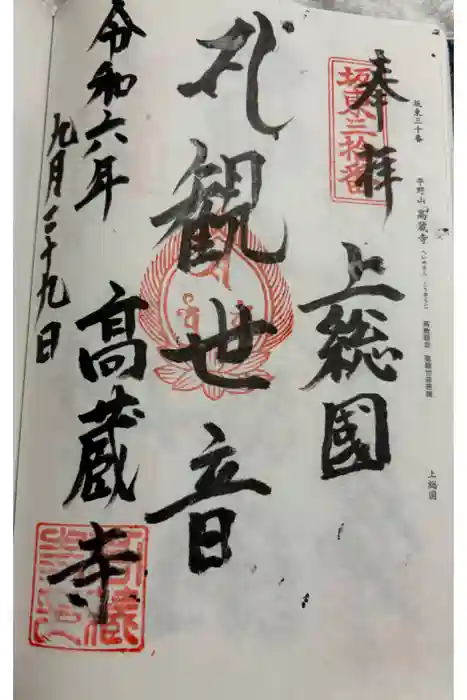 坂東三十番
平野山
高蔵寺
上総国
奉拝
坂東三拾番
上総国
礼観世音
高蔵寺
令和六年
九月二十九日